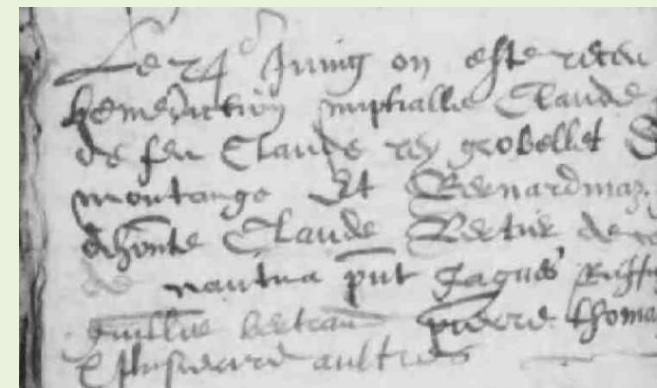 Le 24e Juing on este receu
benediction nuptialle Claude
de feu Claude rey grobellet
montange Et Bernardmaz
dhonte Claude Bertue de
de nantua pnt Jaques Ruffy
guillme bertrau pierre thoma
& plusieurs aultres